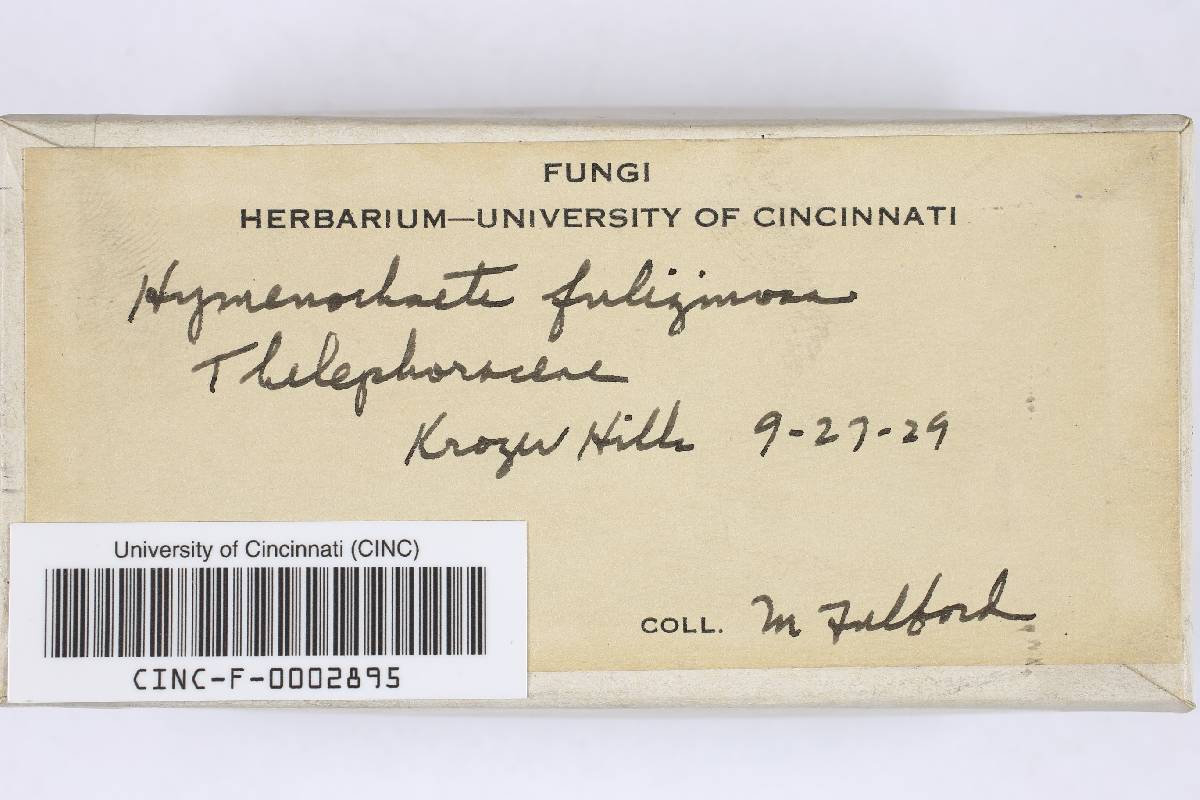 FUNGI
HERBARIUM—UNIVERSITY OF CINCINNATI
Hymenochaete fuliginosa
Thelephoraceae
Kroger Hills 9-27-29
COLL. M Fulford
University of Cincinnati (CINC)
CINC-F-0002895